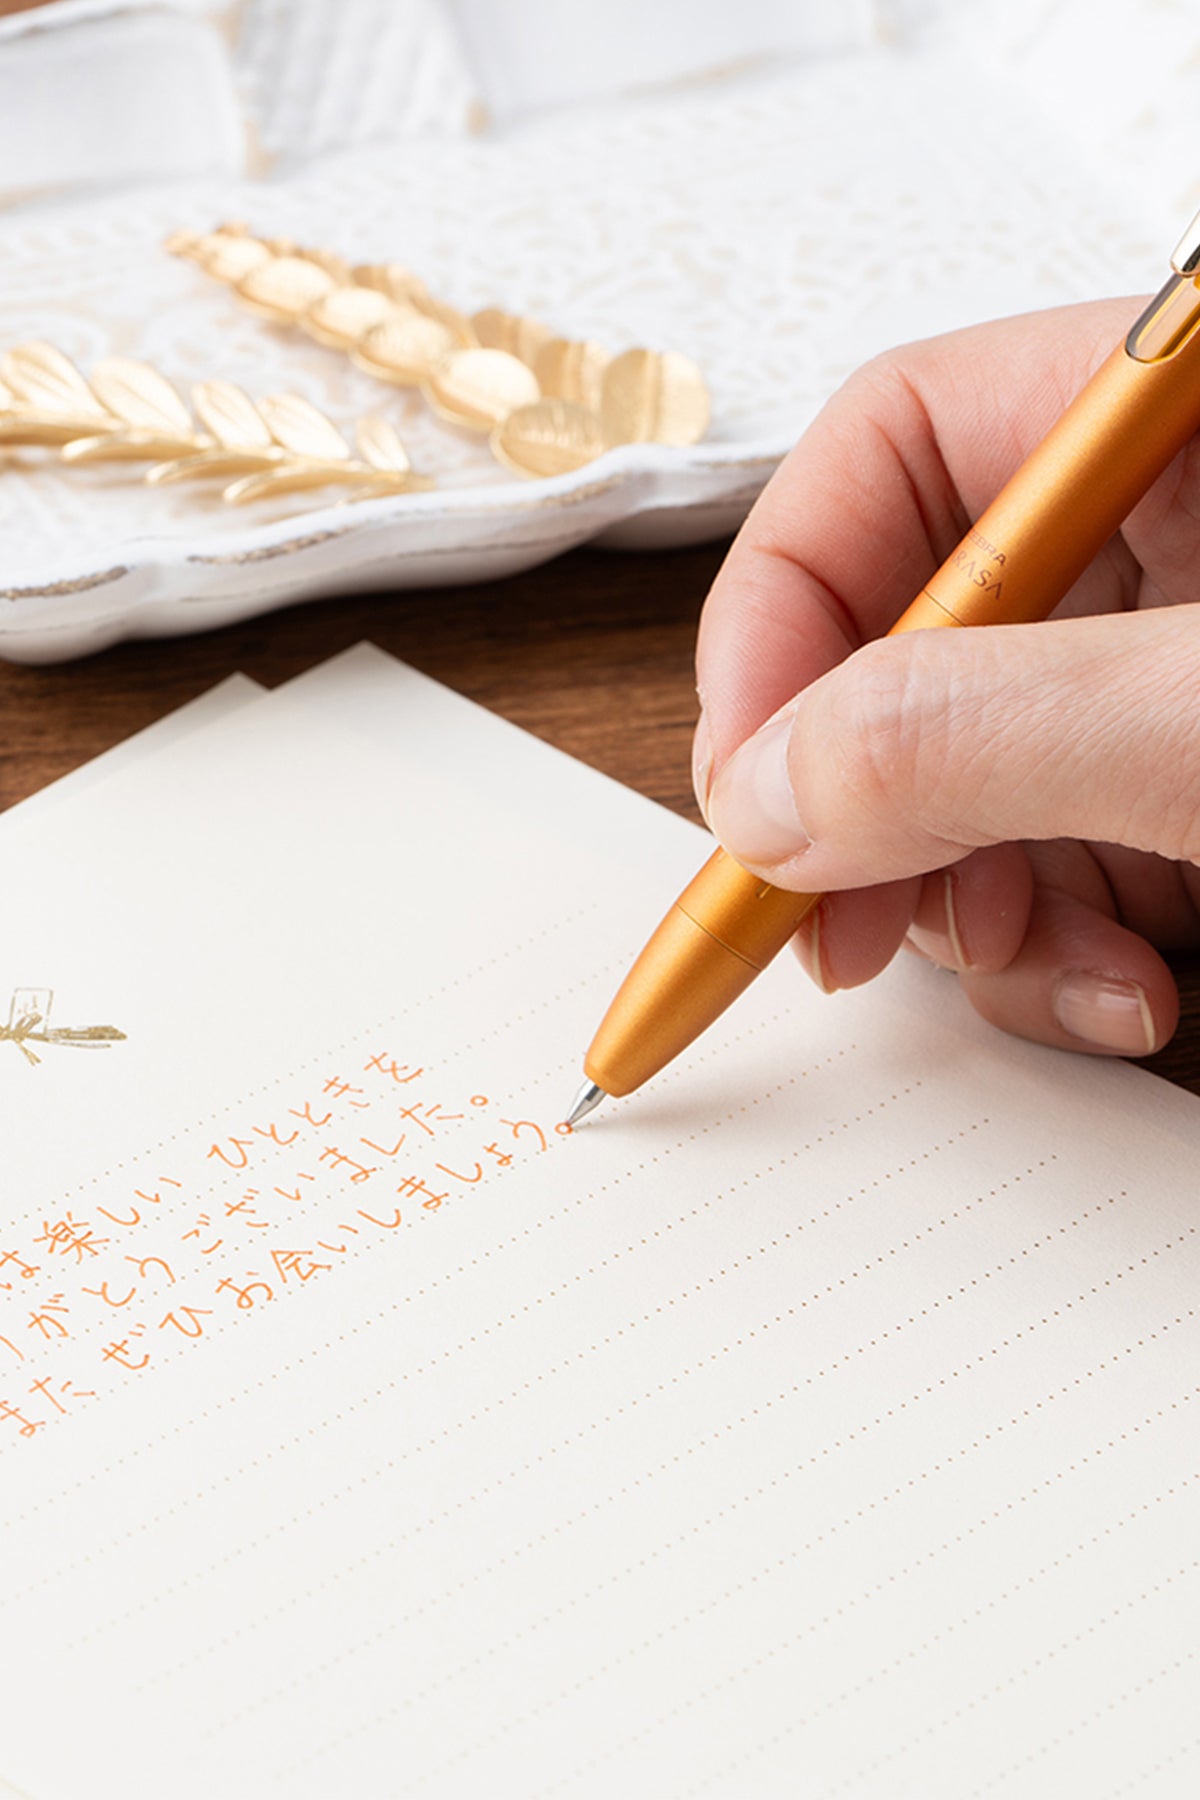 は楽しいひとときを
りがとうございました。
また ぜひお会いしましょう。
ZEBRA
RASA